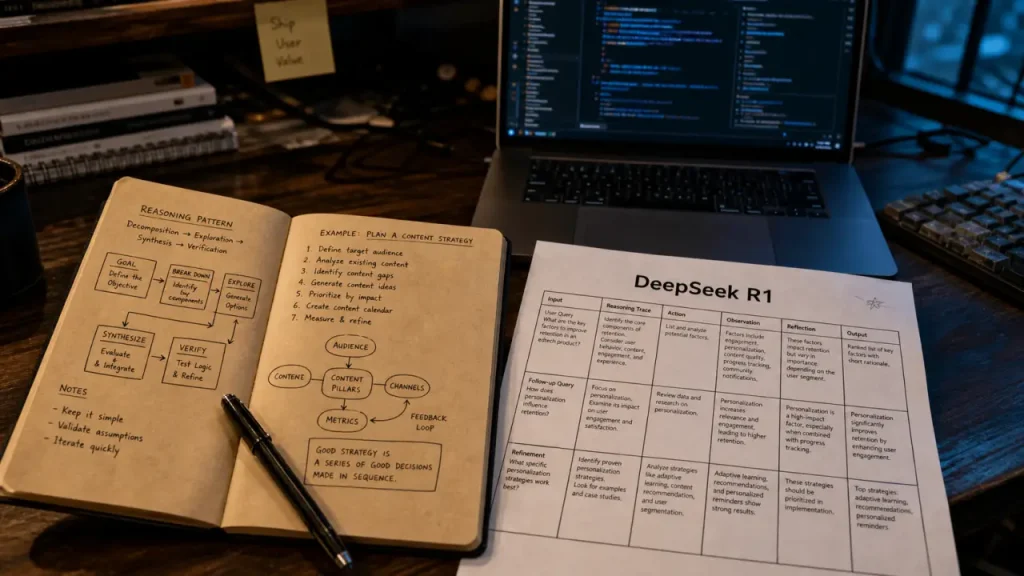 Ship
User
Value
REASONING PATTERN
Decomposition → Exploration →
Synthesis → Verification
GOAL
Define the
Objective
BREAK DOWN
Identify
components
EXPLORE
Generate
Options
SYNTHESIZE
Evaluate
& Integrate
VERIFY
Test Logic
& Refine
NOTES
- Keep it simple
- Validate assumptions
- Iterate quickly
EXAMPLE: PLAN A CONTENT STRATEGY
1. Define target audience
2. Analyze existing content
3. Identify content gaps
4. Generate content ideas
5. Prioritize by impact
6. Create content calendar
7. Measure & refine
AUDIENCE
CONTENT
CONTENT
PILLARS
CHANNELS
METRICS
FEEDBACK
LOOP
GOOD STRATEGY IS
A SERIES OF GOOD DECISIONS
MADE IN SEQUENCE.
DeepSeek R1
Input
Reasoning Trace
Action
Observation
Reflection
Output
User Query
What are the key
factors to improve
retention in an
edtech product?
Identify the core
components of
retention.
Consider user
behavior, content,
engagement, and
experience.
List and analyze
potential factors.
Factors include
engagement,
personalization,
content quality,
progress tracking,
community
notifications.
These factors
impact retention
but vary in
importance
depending on the
user segment.
Ranked list of key
factors with
short rationale.
Follow-up Query
How does
personalization
influence
retention?
Focus on
personalization.
Examine its impact
on user
engagement and
satisfaction.
Review data and
research on
personalization.
Personalization
increases
relevance and
engagement,
leading to higher
retention.
Personalization is
a high-impact
factor, especially
when combined
with progress
tracking.
Personalization
significantly
improves
retention by
enhancing user
engagement.
Refinement
What specific
personalization
strategies work
best?
Identify proven
personalization
strategies.
Look for examples
and case studies.
Analyze strategies
like adaptive
learning, content
recommendation,
and user
segmentation.
Adaptive learning,
recommendations,
and personalized
reminders show
strong results.
These strategies
should be
prioritized in
implementation.
Top strategies:
adaptive learning,
recommendations,
personalized
reminders.